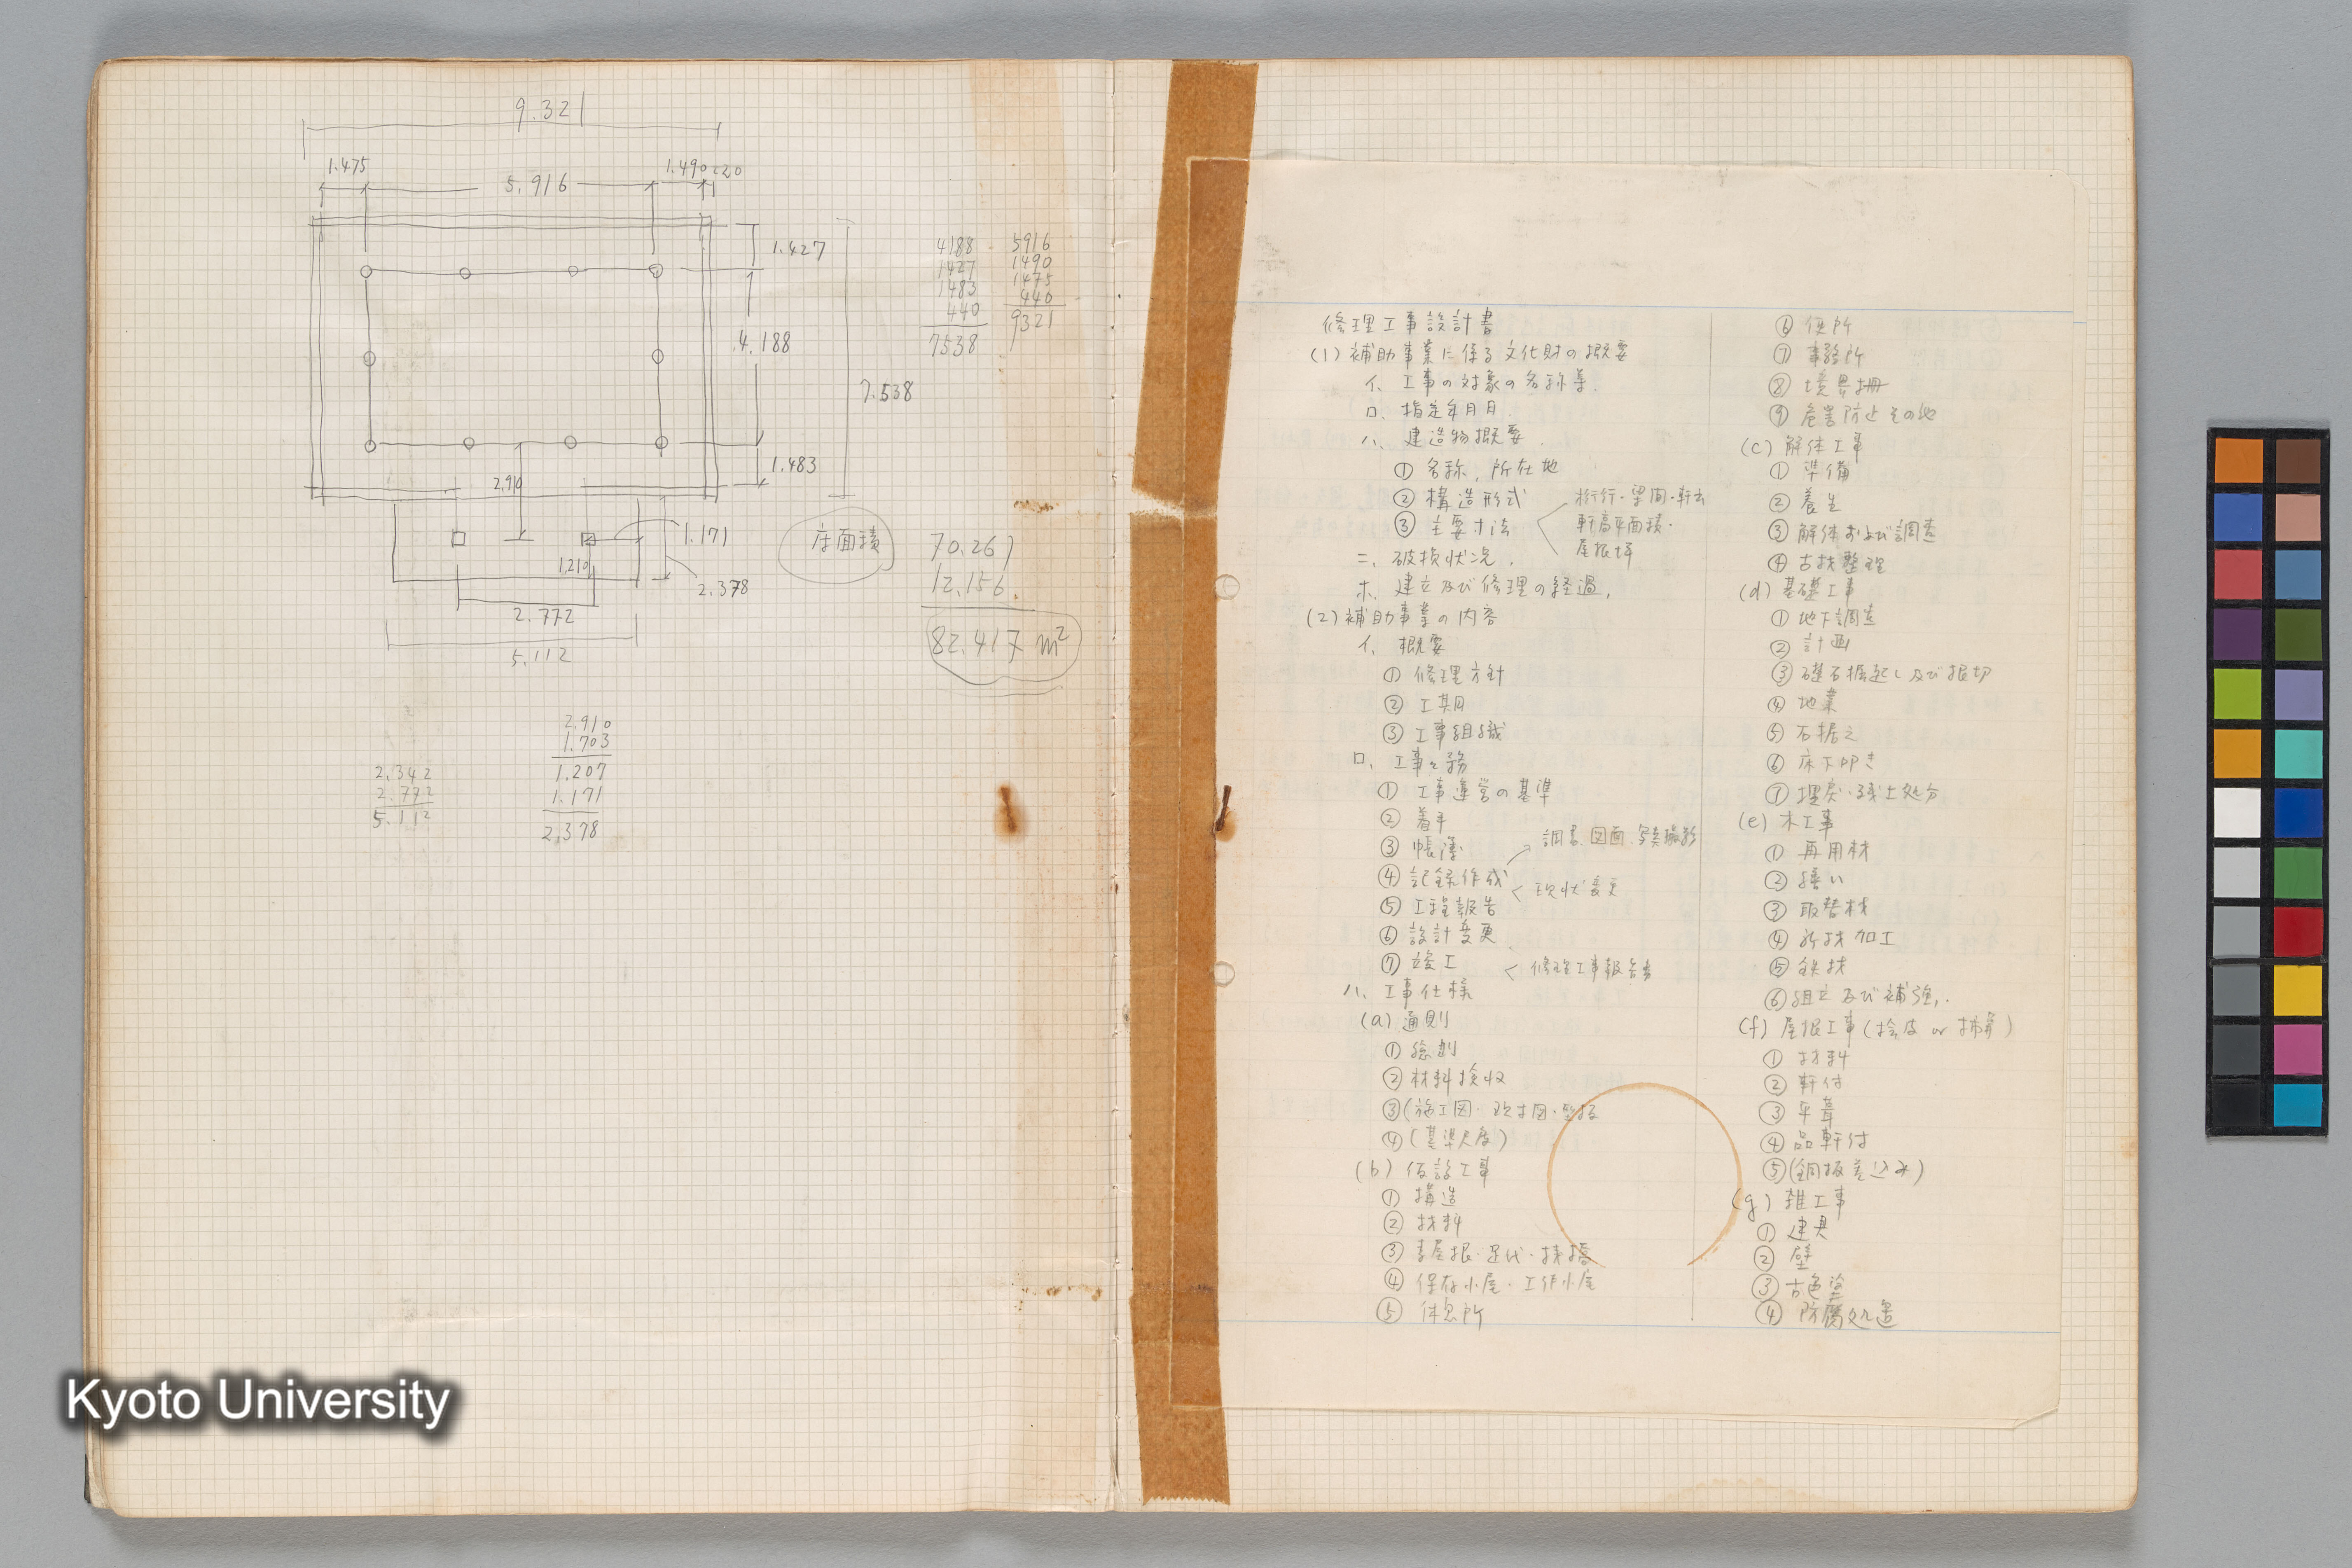 9.321
1.475
5.916
1.490
220
1.427
4.188
7.538
1.483
2.910
1.171
1.210
2.378
2.772
5.112
4188
1427
1483
440
7538
5916
1490
1475
440
9321
床面積
70.261
12.156
82.417 m²
2.910
1.703
1.207
1.171
2.378
2.342
2.772
5.112
Kyoto University
修理工事設計書
(1) 補助事業に係る文化財の概要
イ、工事の対象の名称等.
ロ、指定年月日.
ハ、建造物概要.
① 名称, 所在地
② 構造形式
③ 主要寸法
桁行・梁間・軒出
軒高平面積・
屋根坪
ニ、破損状況,
ホ、建立及び修理の経過,
(2) 補助事業の内容
イ、概要
① 修理方針
② 工期
③ 工事組織
ロ、工事々務
① 工事運営の基準
② 着手
③ 帳簿
④ 記録作成
調書、図面、写真撮影
現状変更
⑤ 工程報告
⑥ 設計変更
⑦ 竣工
修理工事報告書
ハ、工事仕様
(a) 通則
① 総則
② 材料検収
③ (施工図・現寸図・型板
④ (基準尺度)
(b) 仮設工事
① 構造
② 材料
③ 素屋根・足代・桟橋
④ 保存小屋・工作小屋
⑤ 休息所
⑥ 便所
⑦ 事務所
⑧ 境界柵
⑨ 危害防止その他
(c) 解体工事
① 準備
② 養生
③ 解体および調査
④ 古材整理
(d) 基礎工事
① 地下調査
② 計画
③ 礎石掘起し及び根切
④ 地業
⑤ 石据え
⑥ 床下叩き
⑦ 埋戻・残土処分
(e) 木工事
① 再用材
② 繕い
③ 取替材
④ 新材加工
⑤ 鉄材
⑥ 組立及び補強,.
(f) 屋根工事 (桧皮 or 柿葺)
① 材料
② 軒付
③ 平葺
④ 品軒付
⑤ (銅板差込み)
(g) 雑工事
① 建具
② 壁
③ 古色塗
④ 防腐処置